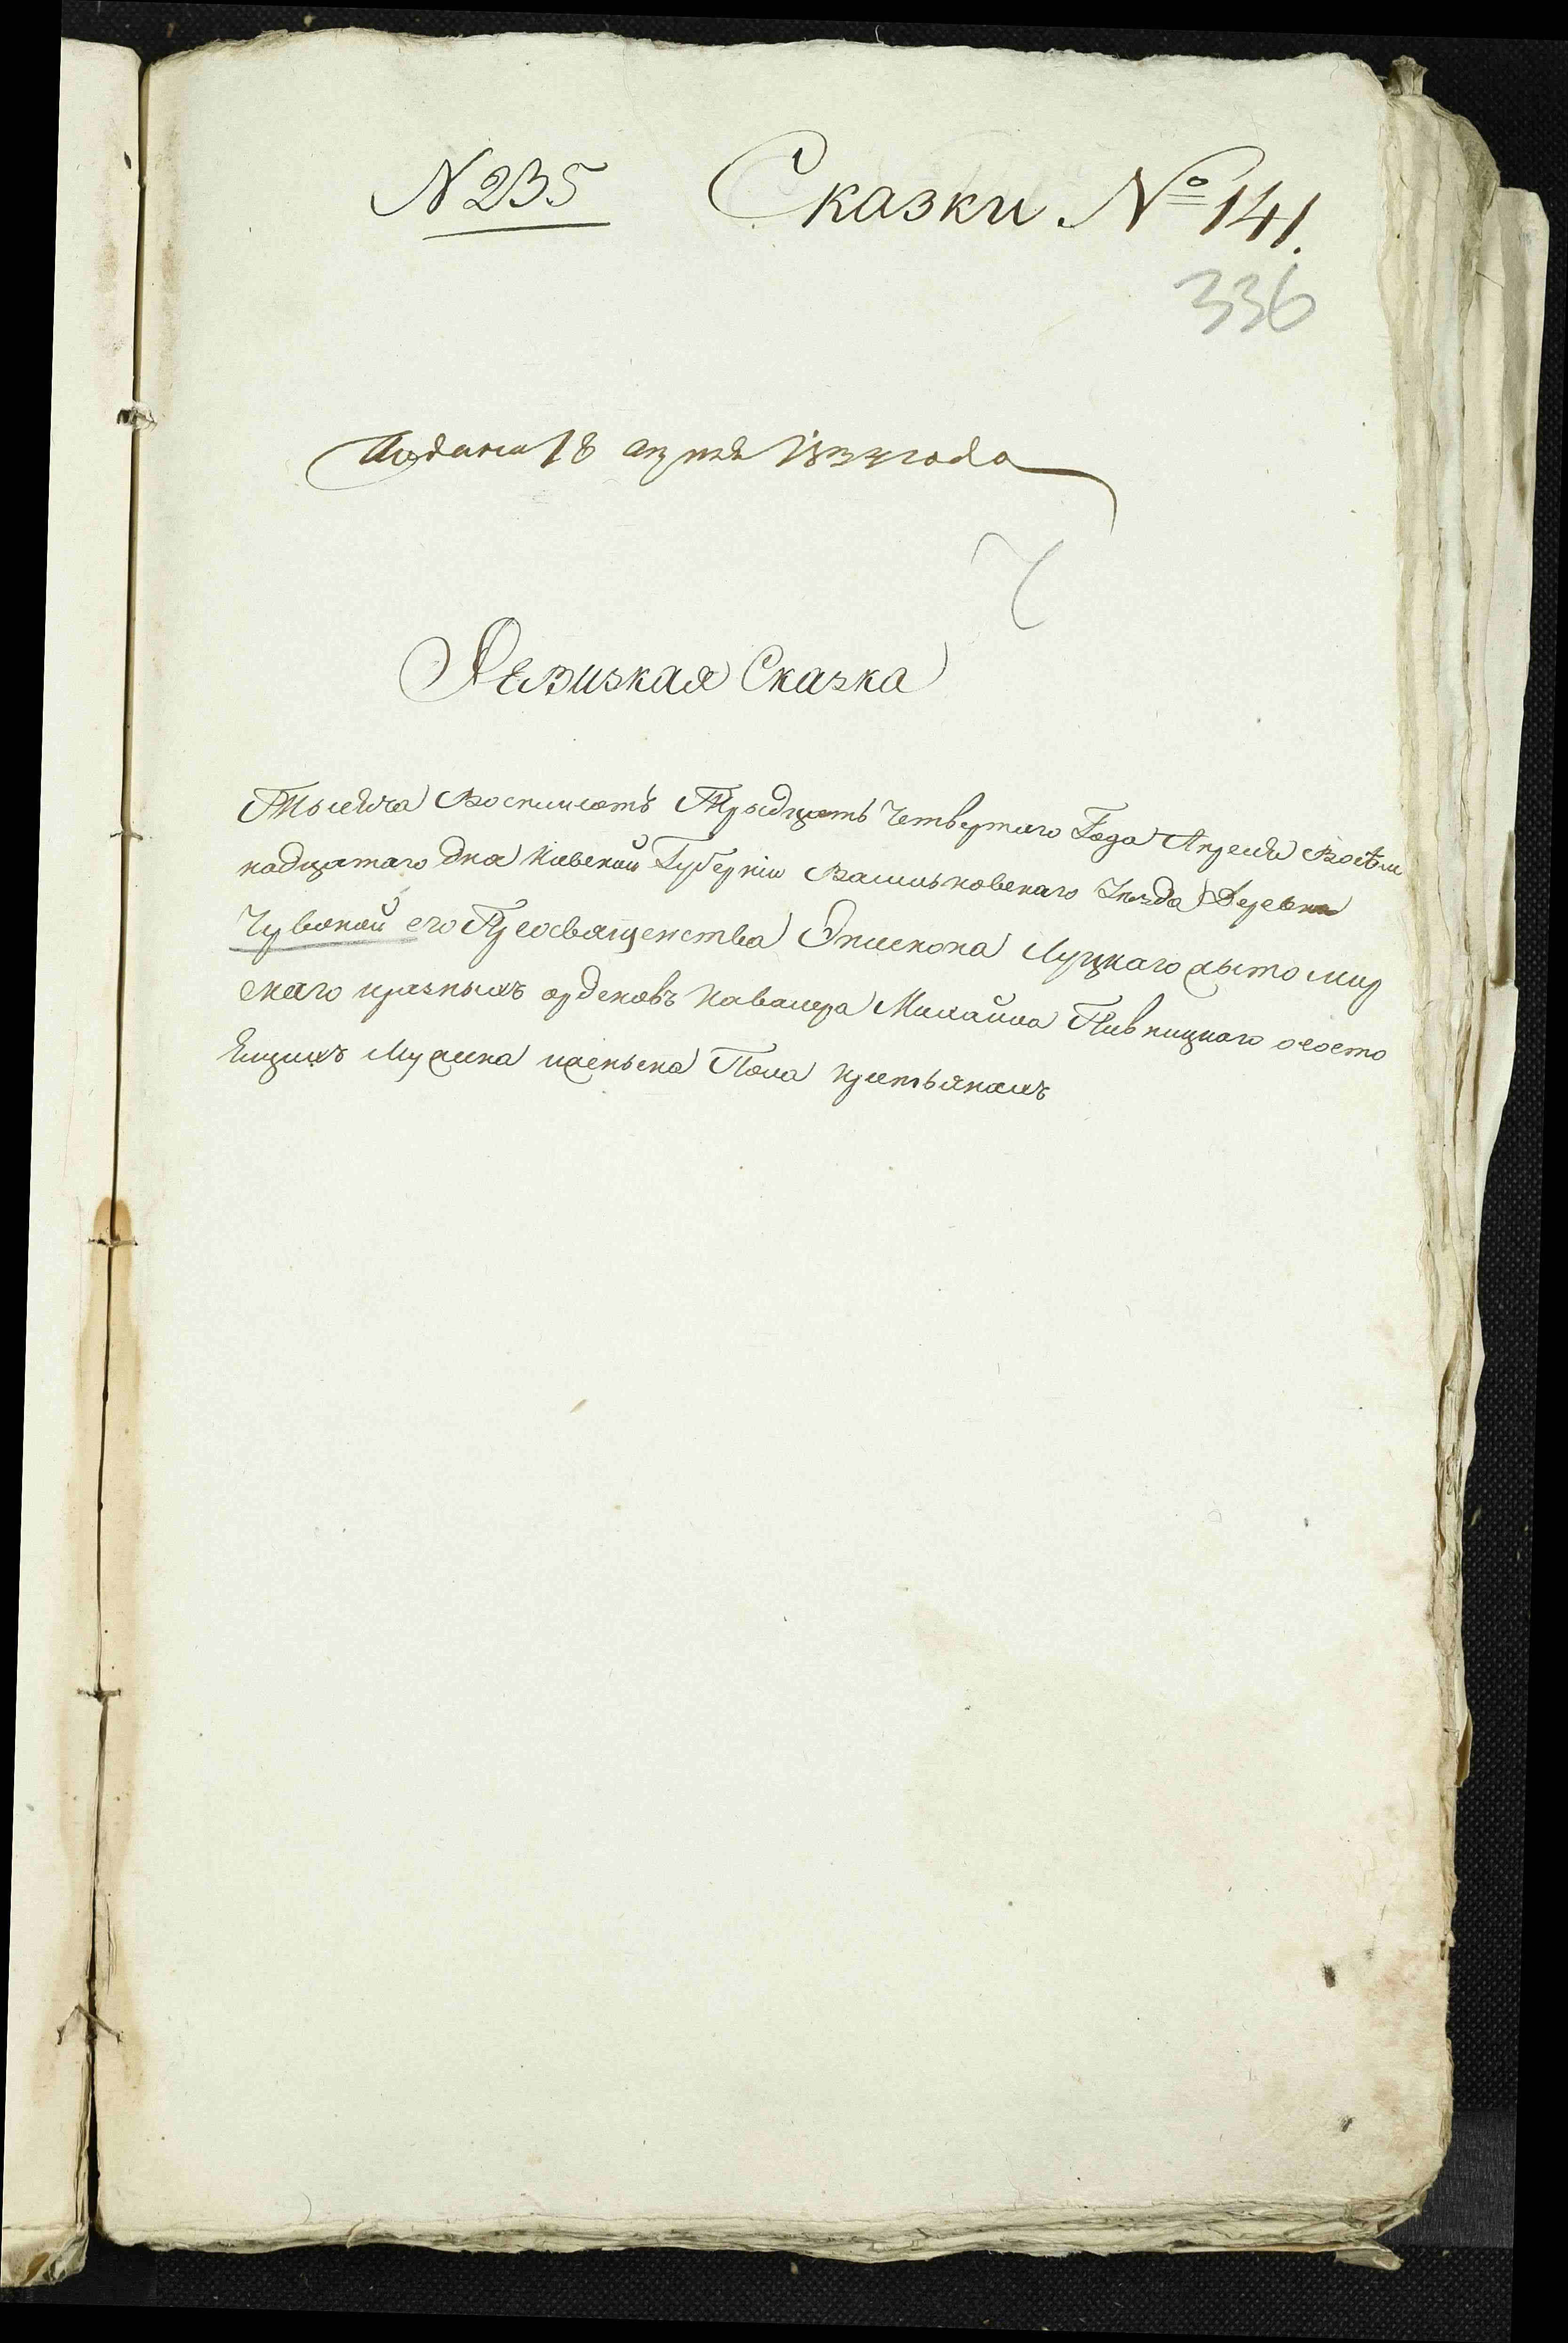 N 235 Сказки № 141.
336
Подана 18 апреля 1834 года
Ревизкая Сказка
Тысяча Восемсотъ Трыдцать Четвертаго Года Апреля Восѣм
надцатаго дня Киевской Губернiи Васильковскаго Уѣзда Деревни
его Преосвященства Эпископа Луцкаго Жытомир
скаго и разныхъ орденовъ Кавалера Михайла Пивницкаго о состо
ящихъ Мужска и женска Пола крестьянахъ